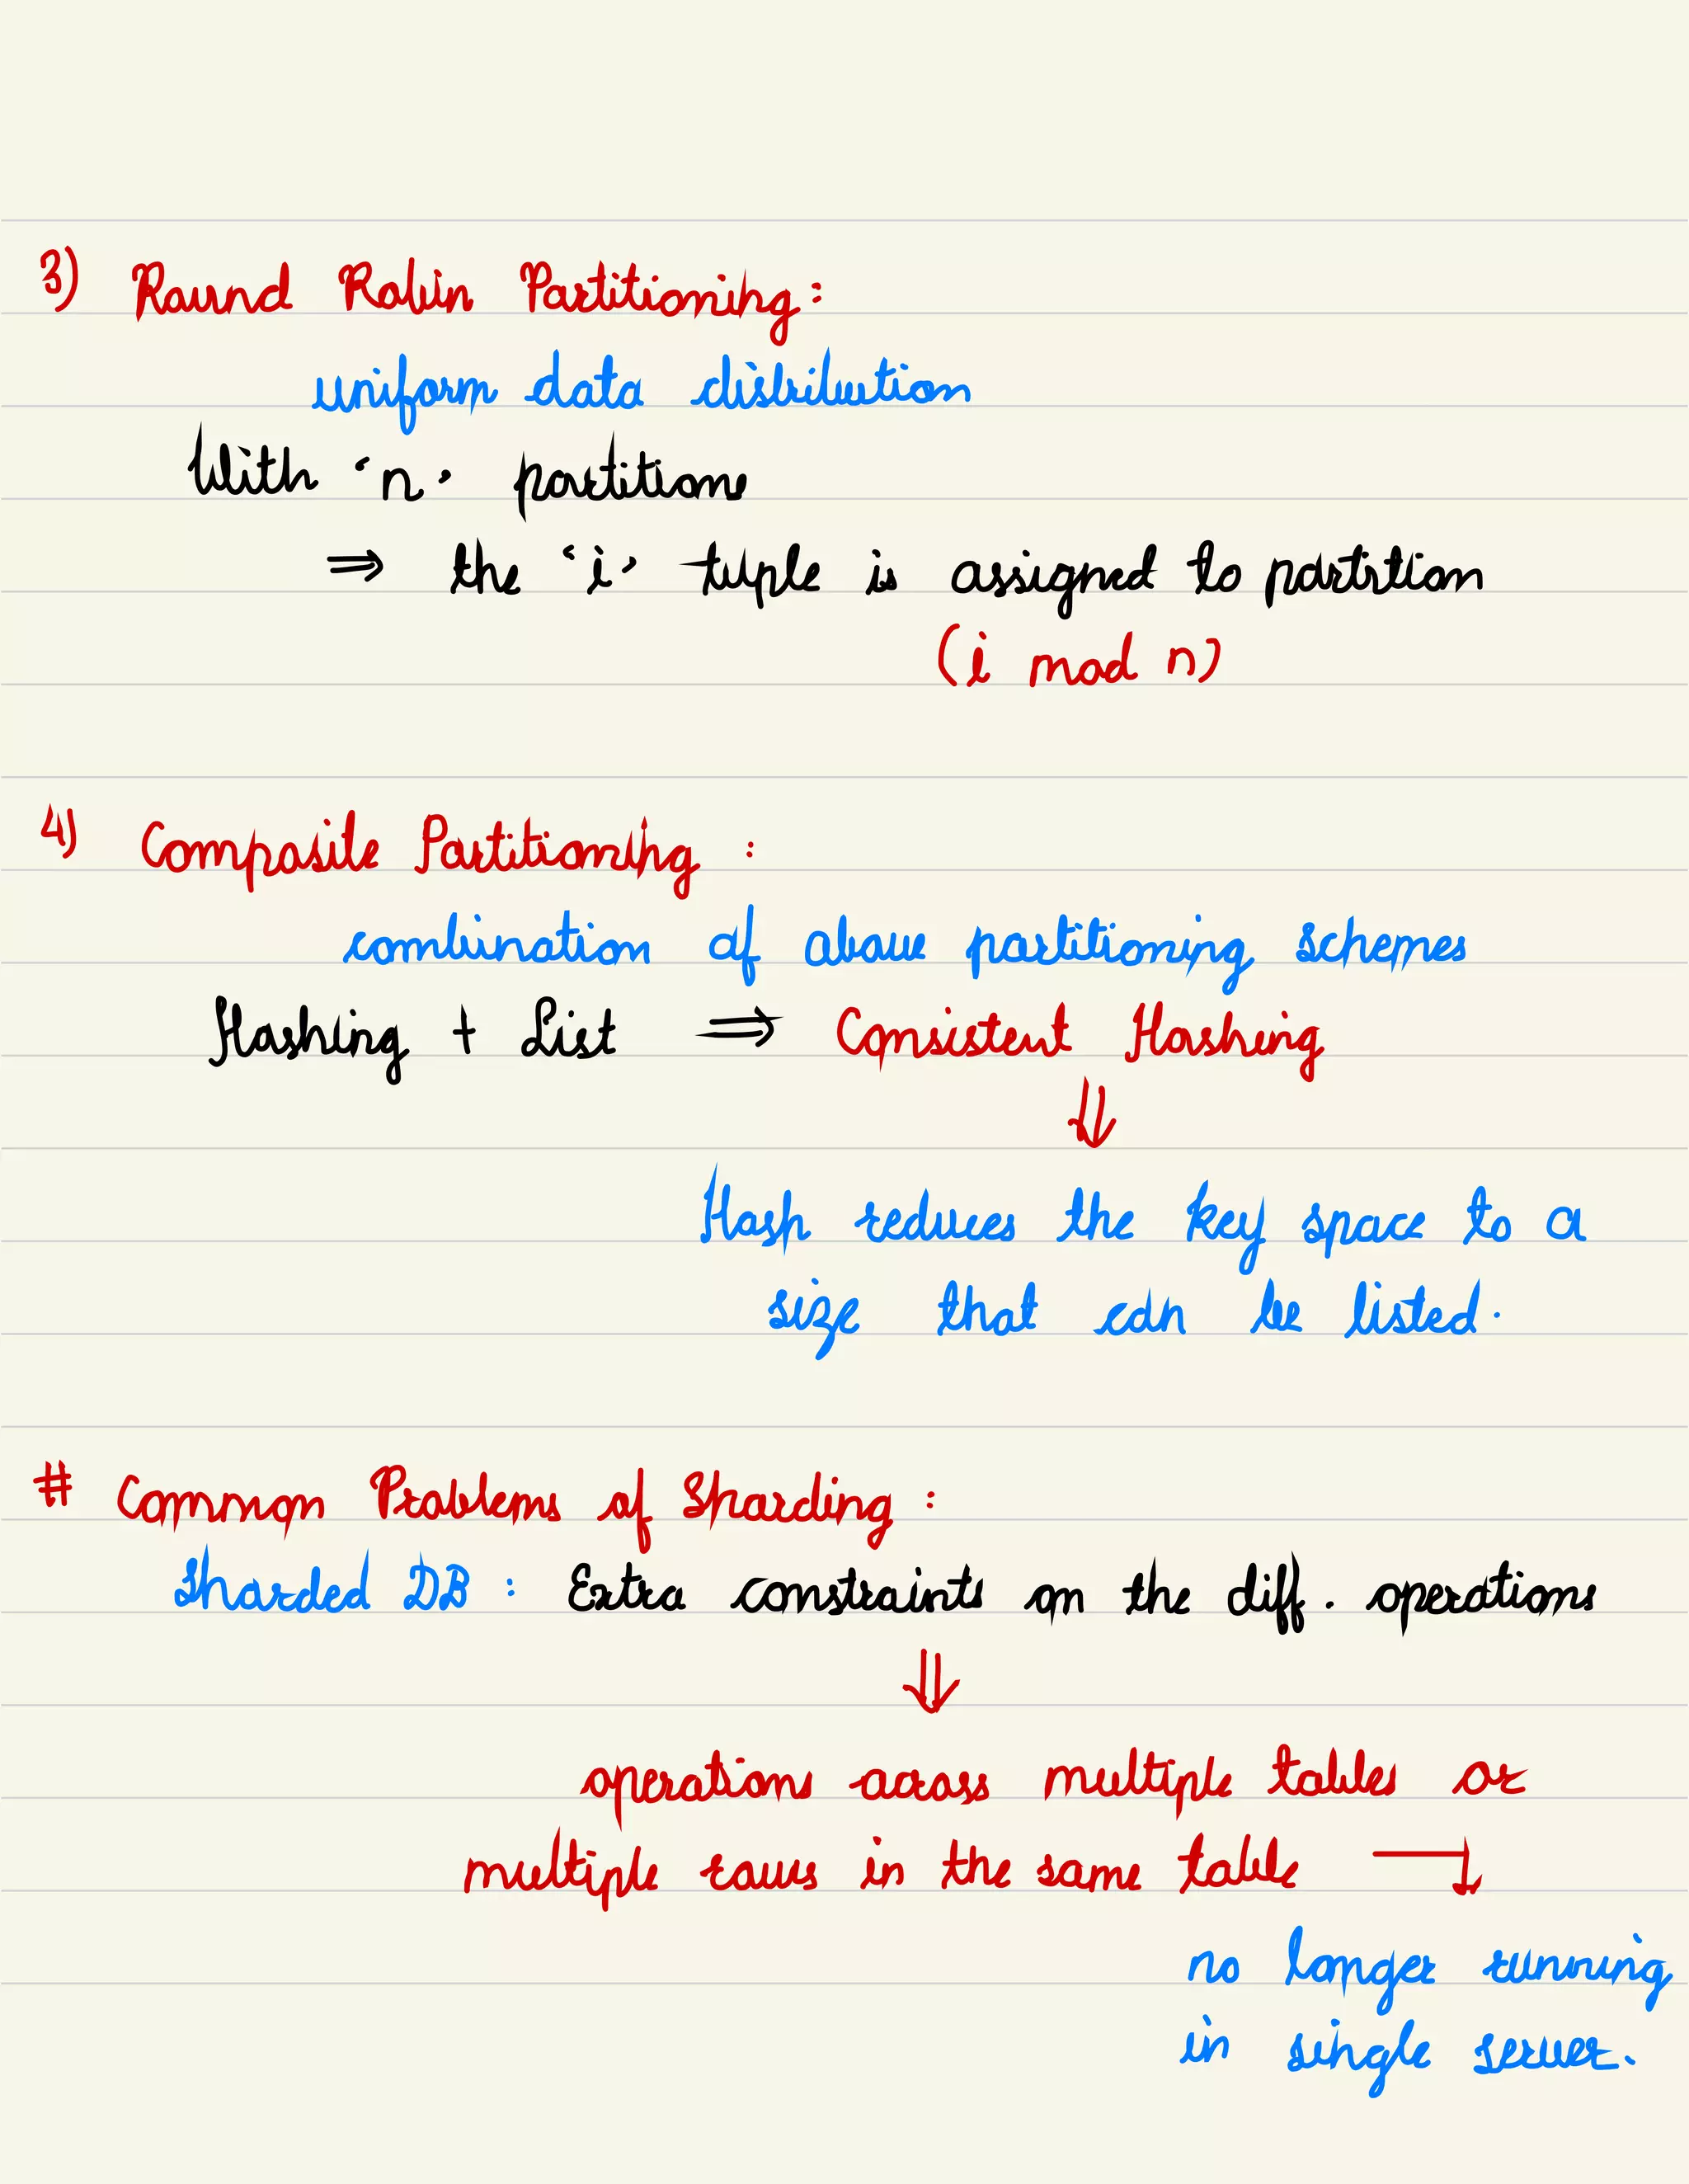 3) Round Robin Partitioning:
uniform data distribution
With 'n' partitions
⇒ the 'i' tuple is assigned to partition
(i mod n)
4) Composite Partitioning :
combination of above partitioning schemes
Hashing + List ⇒ Consistent Hashing
⇓
Hash reduces the key space to a
size that can be listed.
# Common Problems of Sharding :
Sharded DB : Extra constraints on the diff. operations
⇓
operations across multiple tables or
multiple rows in the same table
no longer running
in single server.